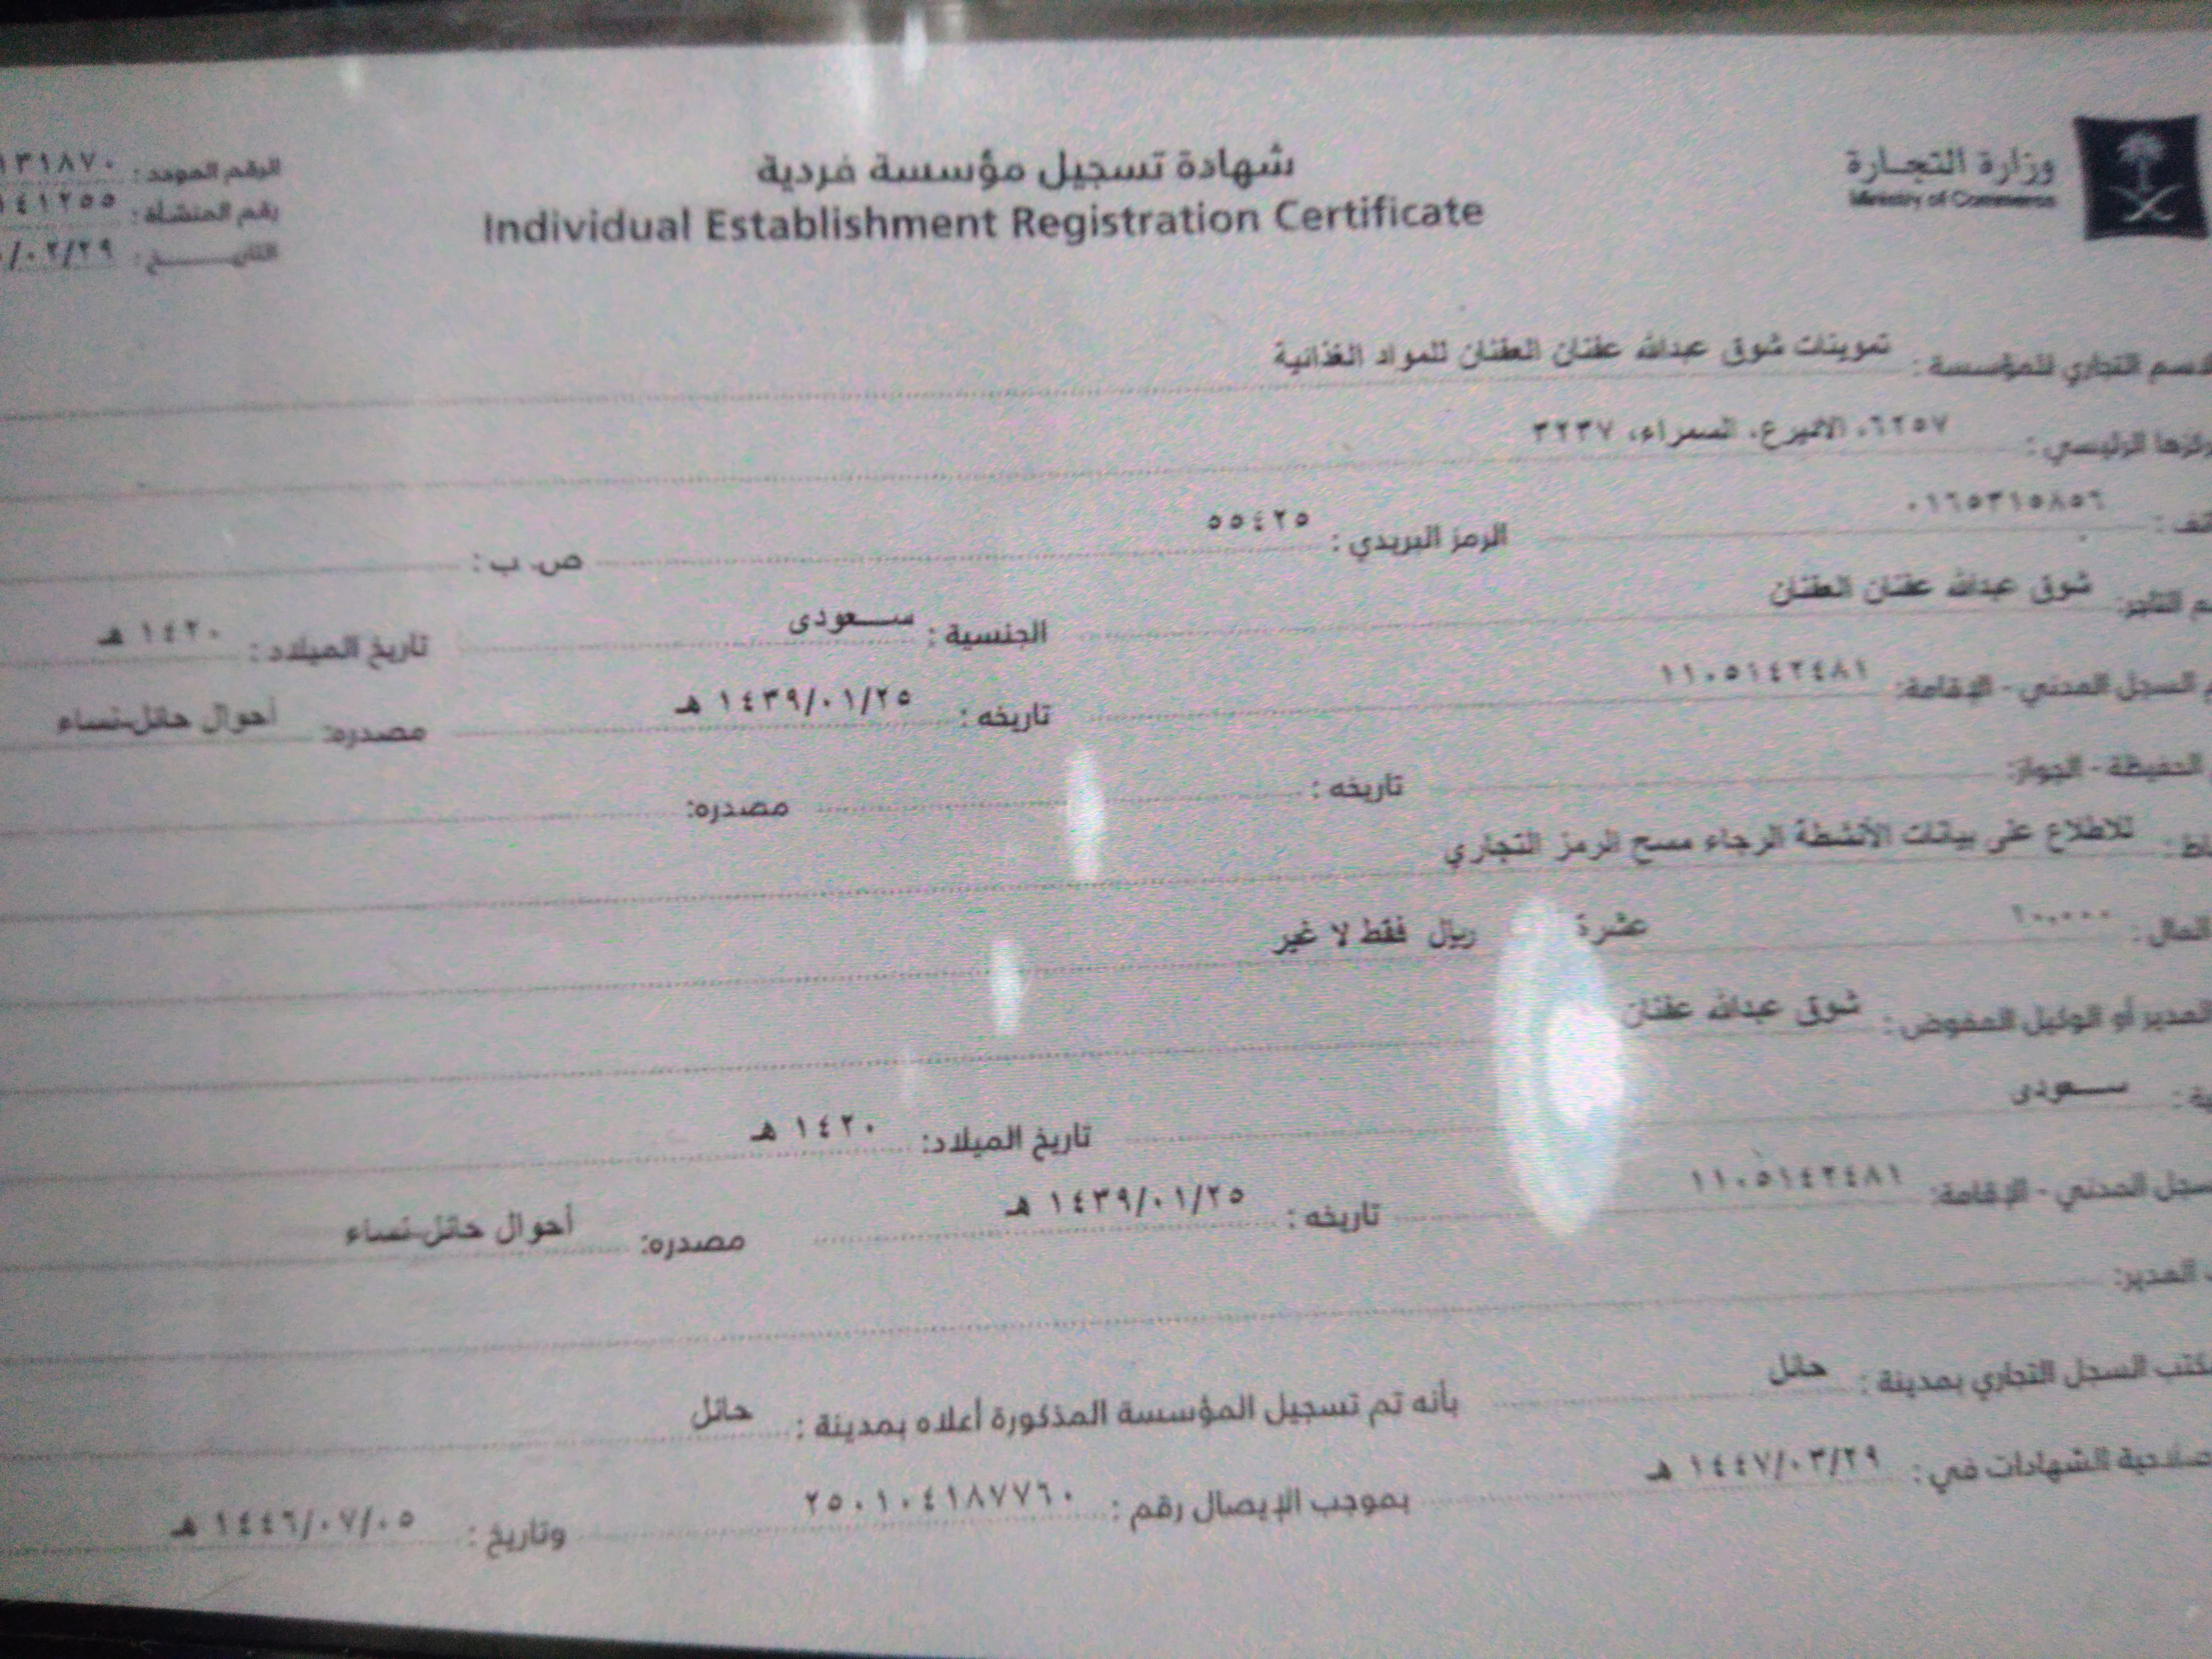 وزارة التجارة
Ministry of Commerce
شهادة تسجيل مؤسسة فردية
Individual Establishment Registration Certificate
الرقم الموحد: ١٣١٨٧٠
رقم المنشأة: ٤١٢٥٥
التاريــــــخ: /٠٢/٢٩
الاسم التجاري للمؤسسة: تموينات شوق عبدالله عفنان العفنان للمواد الغذائية
الرئيسي: ٦٢٥٧، السمراء، ٣٢٣٧
٠١٦٥٣١٥٨٥٦ الرمز البريدي: ٥٥٤٢٥ ص. ب:
التاجر: شوق عبدالله عفنان العفنان الجنسية: ســـعودى تاريخ الميلاد: ١٤٢٠ هـ
السجل المدني - الإقامة: ١١٠٥١٤٢٤٨١ تاريخه: ١٤٣٩/٠١/٢٥ هـ مصدره: أحوال حائل-نساء
الحفيظة - الجواز: تاريخه: مصدره:
للاطلاع على بيانات الأنشطة الرجاء مسح الرمز التجاري
المال: ١٠,٠٠٠ عشرة ريال فقط لا غير
المدير أو الوكيل المفوض: شوق عبدالله عفنان
ســـعودى تاريخ الميلاد: ١٤٢٠ هـ
المدني - الإقامة: ١١٠٥١٤٢٤٨١ تاريخه: ١٤٣٩/٠١/٢٥ هـ مصدره: أحوال حائل-نساء
المدير:
السجل التجاري بمدينة: حائل بأنه تم تسجيل المؤسسة المذكورة أعلاه بمدينة: حائل
صلاحية الشهادات في: ١٤٤٧/٠٣/٢٩ هـ بموجب الإيصال رقم: ٢٥٠١٠٤١٨٧٧٦٠ وتاريخ: ١٤٤٦/٠٧/٠٥ هـ